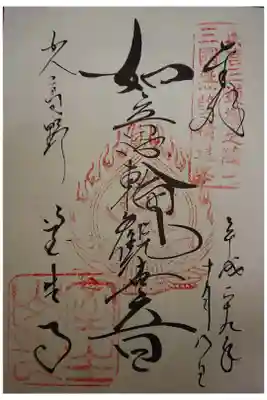 奉拝
平成二十九年
十月八日
如意輪觀世音
女人高野
室生寺